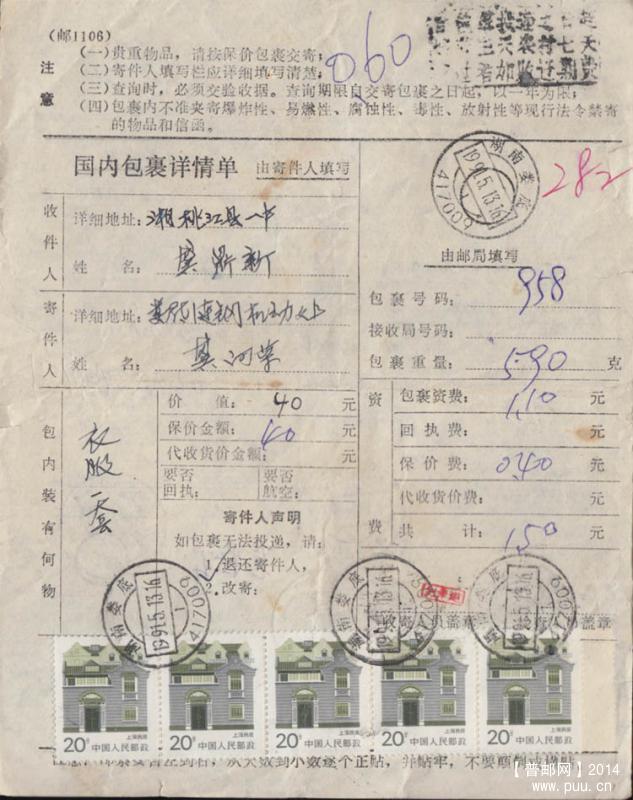 (邮1106)
注意
(一)贵重物品，请按保价包裹交寄；
(二)寄件人填写栏应详细填写清楚；
(三)查询时，必须交验收据。查询期限自交寄包裹之日起，以一年为限；
(四)包裹内不准夹寄爆炸性、易燃性、腐蚀性、毒性、放射性等现行法令禁寄
的物品和信函。
060
国内包裹详情单 由寄件人填写
湖南娄底
1991.5.13.16
417600
282
收件人
详细地址：湘桃江县一中
姓 名：莫鼎新
寄件人
详细地址：
姓 名：
由邮局填写
包裹号码： 958
接收局号码：
包裹重量： 590 克
包内装有何物
衣服一套
价 值： 40 元
保价金额： 40 元
代收货价金额： 元
要否回执： 要否航空：
寄件人声明
如包裹无法投递，请：
1.退还寄件人，
2.改寄：
资费
包裹资费： 1.10 元
回执费： 元
保价费： 0.40 元
代收货价费： 元
共 计： 1.50 元
湖南娄底
1991.5.13.16
湖南娄底
1991.5.13.16
湖南娄底
1991.5.13.16
收寄人员盖章
上海民居
20分 中国人民邮政
上海民居
20分 中国人民邮政
上海民居
20分 中国人民邮政
上海民居
20分 中国人民邮政
上海民居
20分 中国人民邮政
从大数到小数逐个正贴，并贴牢，不要
【普邮网】2014
www.puu.cn